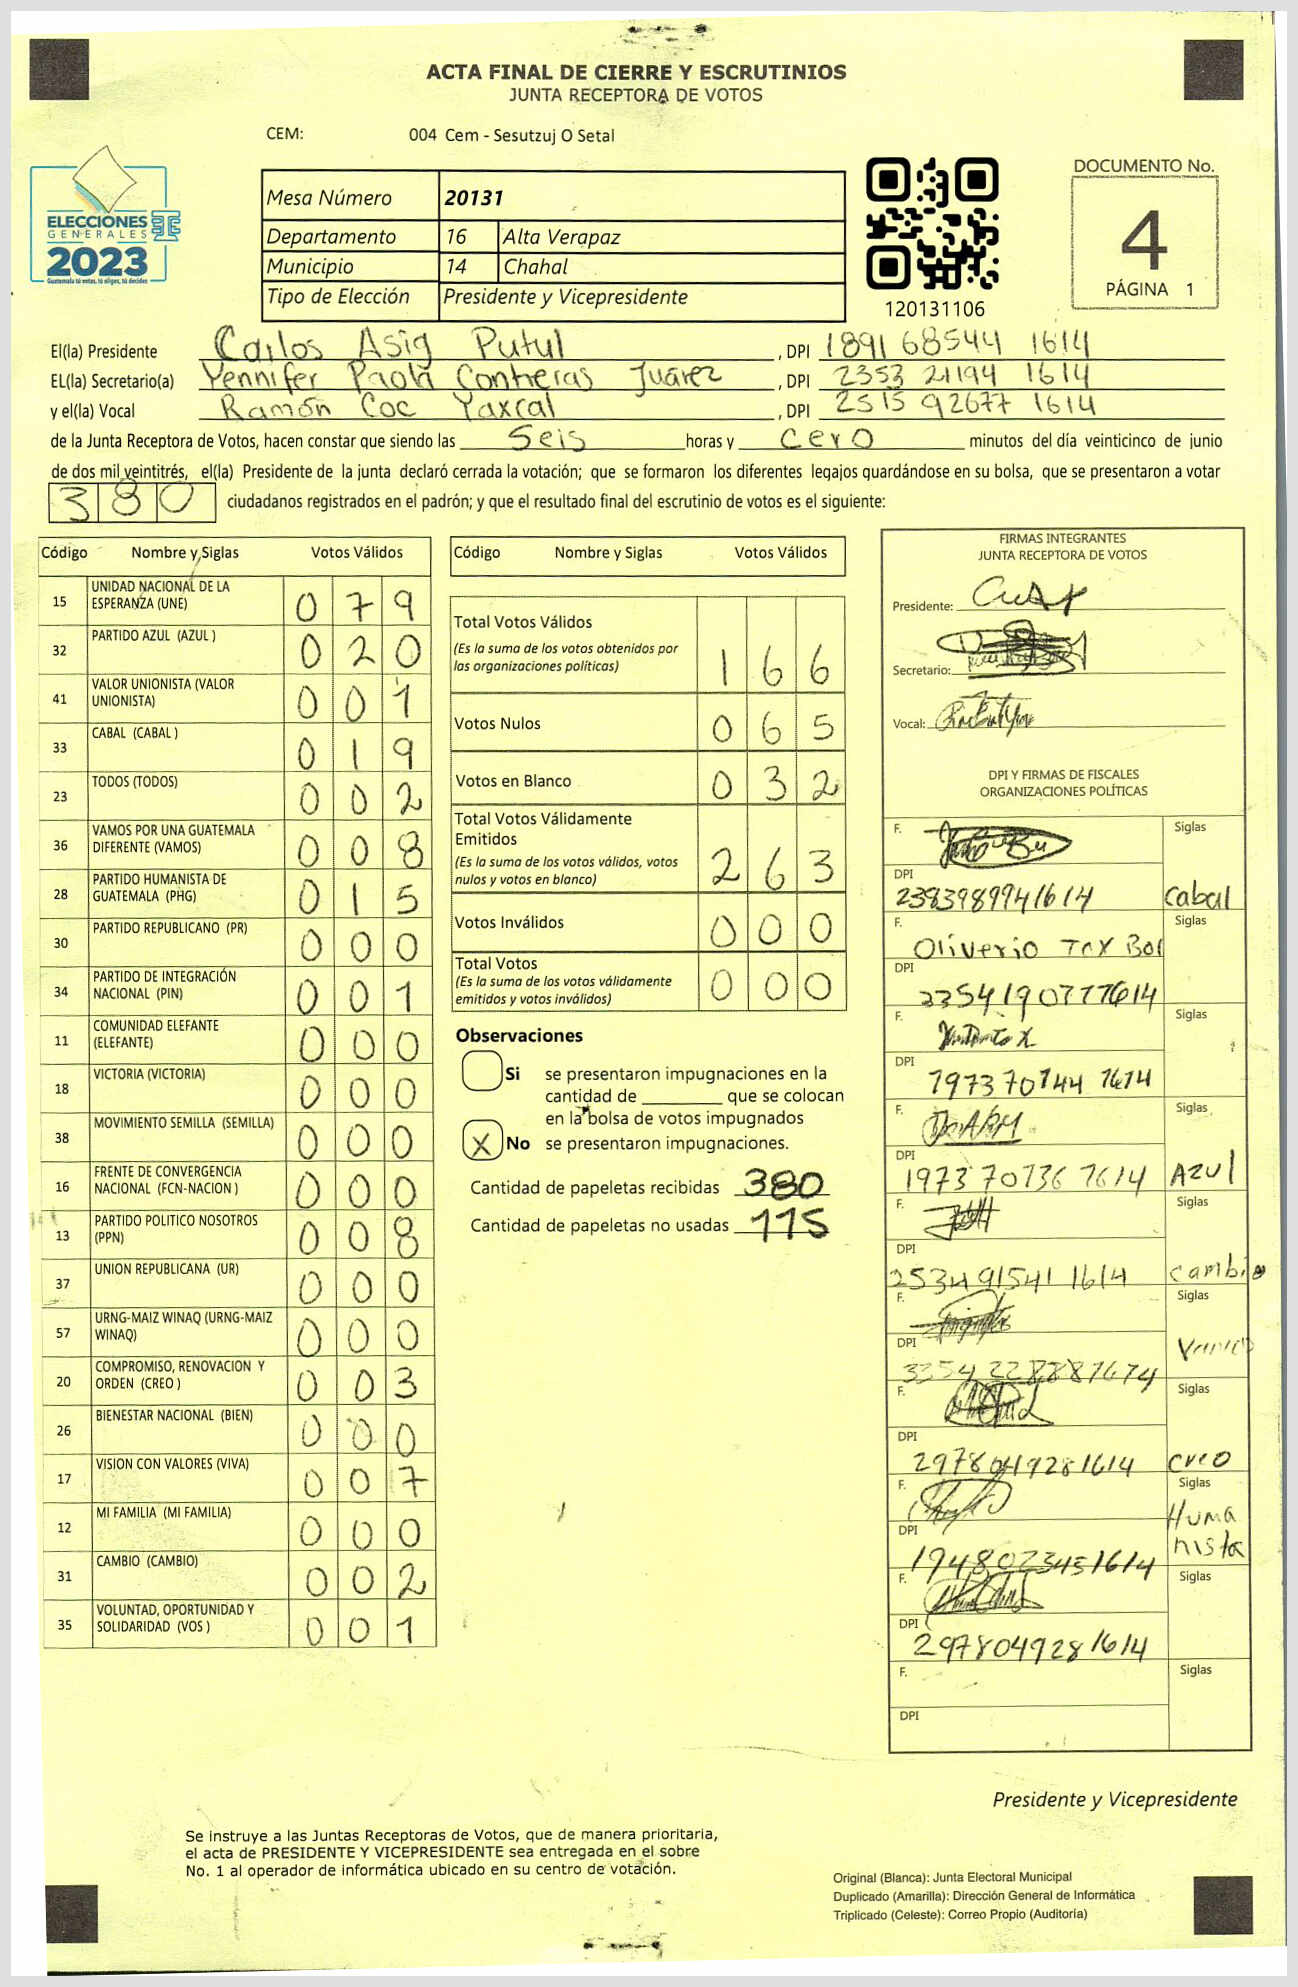 ACTA FINAL DE CIERRE Y ESCRUTINIOS
JUNTA RECEPTORA DE VOTOS
CEM: 004 Cem - Sesutzuj O Setal
ELECCIONES
GENERALES
2023
Guatemala tú votas, tú eliges, tú decides
Mesa Número 20131
Departamento 16 Alta Verapaz
Municipio 14 Chahal
Tipo de Elección Presidente y Vicepresidente
120131106
DOCUMENTO No.
4
PÁGINA 1
El(la) Presidente Carlos Asig Putul , DPI 1891 68544 1614
EL(la) Secretario(a) Yennifer Paola Contreras Juárez , DPI 2353 21194 1614
y el(la) Vocal Ramón Coc Yaxcal , DPI 2515 92677 1614
de la Junta Receptora de Votos, hacen constar que siendo las Seis horas y cero minutos del día veinticinco de junio
de dos mil veintitrés, el(la) Presidente de la junta declaró cerrada la votación; que se formaron los diferentes legajos quardándose en su bolsa, que se presentaron a votar
380 ciudadanos registrados en el padrón; y que el resultado final del escrutinio de votos es el siguiente:
Código Nombre y Siglas Votos Válidos
15 UNIDAD NACIONAL DE LA ESPERANZA (UNE) 079
32 PARTIDO AZUL (AZUL ) 020
41 VALOR UNIONISTA (VALOR UNIONISTA) 001
33 CABAL (CABAL ) 019
23 TODOS (TODOS) 002
36 VAMOS POR UNA GUATEMALA DIFERENTE (VAMOS) 008
28 PARTIDO HUMANISTA DE GUATEMALA (PHG) 015
30 PARTIDO REPUBLICANO (PR) 000
34 PARTIDO DE INTEGRACIÓN NACIONAL (PIN) 001
11 COMUNIDAD ELEFANTE (ELEFANTE) 000
18 VICTORIA (VICTORIA) 000
38 MOVIMIENTO SEMILLA (SEMILLA) 000
16 FRENTE DE CONVERGENCIA NACIONAL (FCN-NACION ) 000
13 PARTIDO POLITICO NOSOTROS (PPN) 008
37 UNION REPUBLICANA (UR) 000
57 URNG-MAIZ WINAQ (URNG-MAIZ WINAQ) 000
20 COMPROMISO, RENOVACION Y ORDEN (CREO ) 003
26 BIENESTAR NACIONAL (BIEN) 000
17 VISION CON VALORES (VIVA) 007
12 MI FAMILIA (MI FAMILIA) 000
31 CAMBIO (CAMBIO) 002
35 VOLUNTAD, OPORTUNIDAD Y SOLIDARIDAD (VOS ) 001
Código Nombre y Siglas Votos Válidos
Total Votos Válidos 166
(Es la suma de los votos obtenidos por
las organizaciones políticas)
Votos Nulos 065
Votos en Blanco 032
Total Votos Válidamente
Emitidos 263
(Es la suma de los votos válidos, votos
nulos y votos en blanco)
Votos Inválidos 000
Total Votos 000
(Es la suma de los votos válidamente
emitidos y votos inválidos)
Observaciones
Si se presentaron impugnaciones en la
cantidad de ________ que se colocan
en la bolsa de votos impugnados
X No se presentaron impugnaciones.
Cantidad de papeletas recibidas 380
Cantidad de papeletas no usadas 115
FIRMAS INTEGRANTES
JUNTA RECEPTORA DE VOTOS
Presidente:
Secretario:
Vocal:
DPI Y FIRMAS DE FISCALES
ORGANIZACIONES POLÍTICAS
F. Siglas
DPI
2383989941614 Cabal
F. Oliverio Tox Bol Siglas
DPI
2354190777614
F. Siglas
DPI
1973 70144 1614
F. Siglas
DPI
1973 70736 1614 AZUL
F. Siglas
DPI
2534 91541 1614 cambio
F. Siglas
DPI
F. Siglas
DPI
2978049281614 creo
F. Siglas
DPI Huma
nista
1948023451614
F. Siglas
DPI
2978049281614
F. Siglas
DPI
Presidente y Vicepresidente
Se instruye a las Juntas Receptoras de Votos, que de manera prioritaria,
el acta de PRESIDENTE Y VICEPRESIDENTE sea entregada en el sobre
No. 1 al operador de informática ubicado en su centro de votación.
Original (Blanca): Junta Electoral Municipal
Duplicado (Amarilla): Dirección General de Informática
Triplicado (Celeste): Correo Propio (Auditoría)